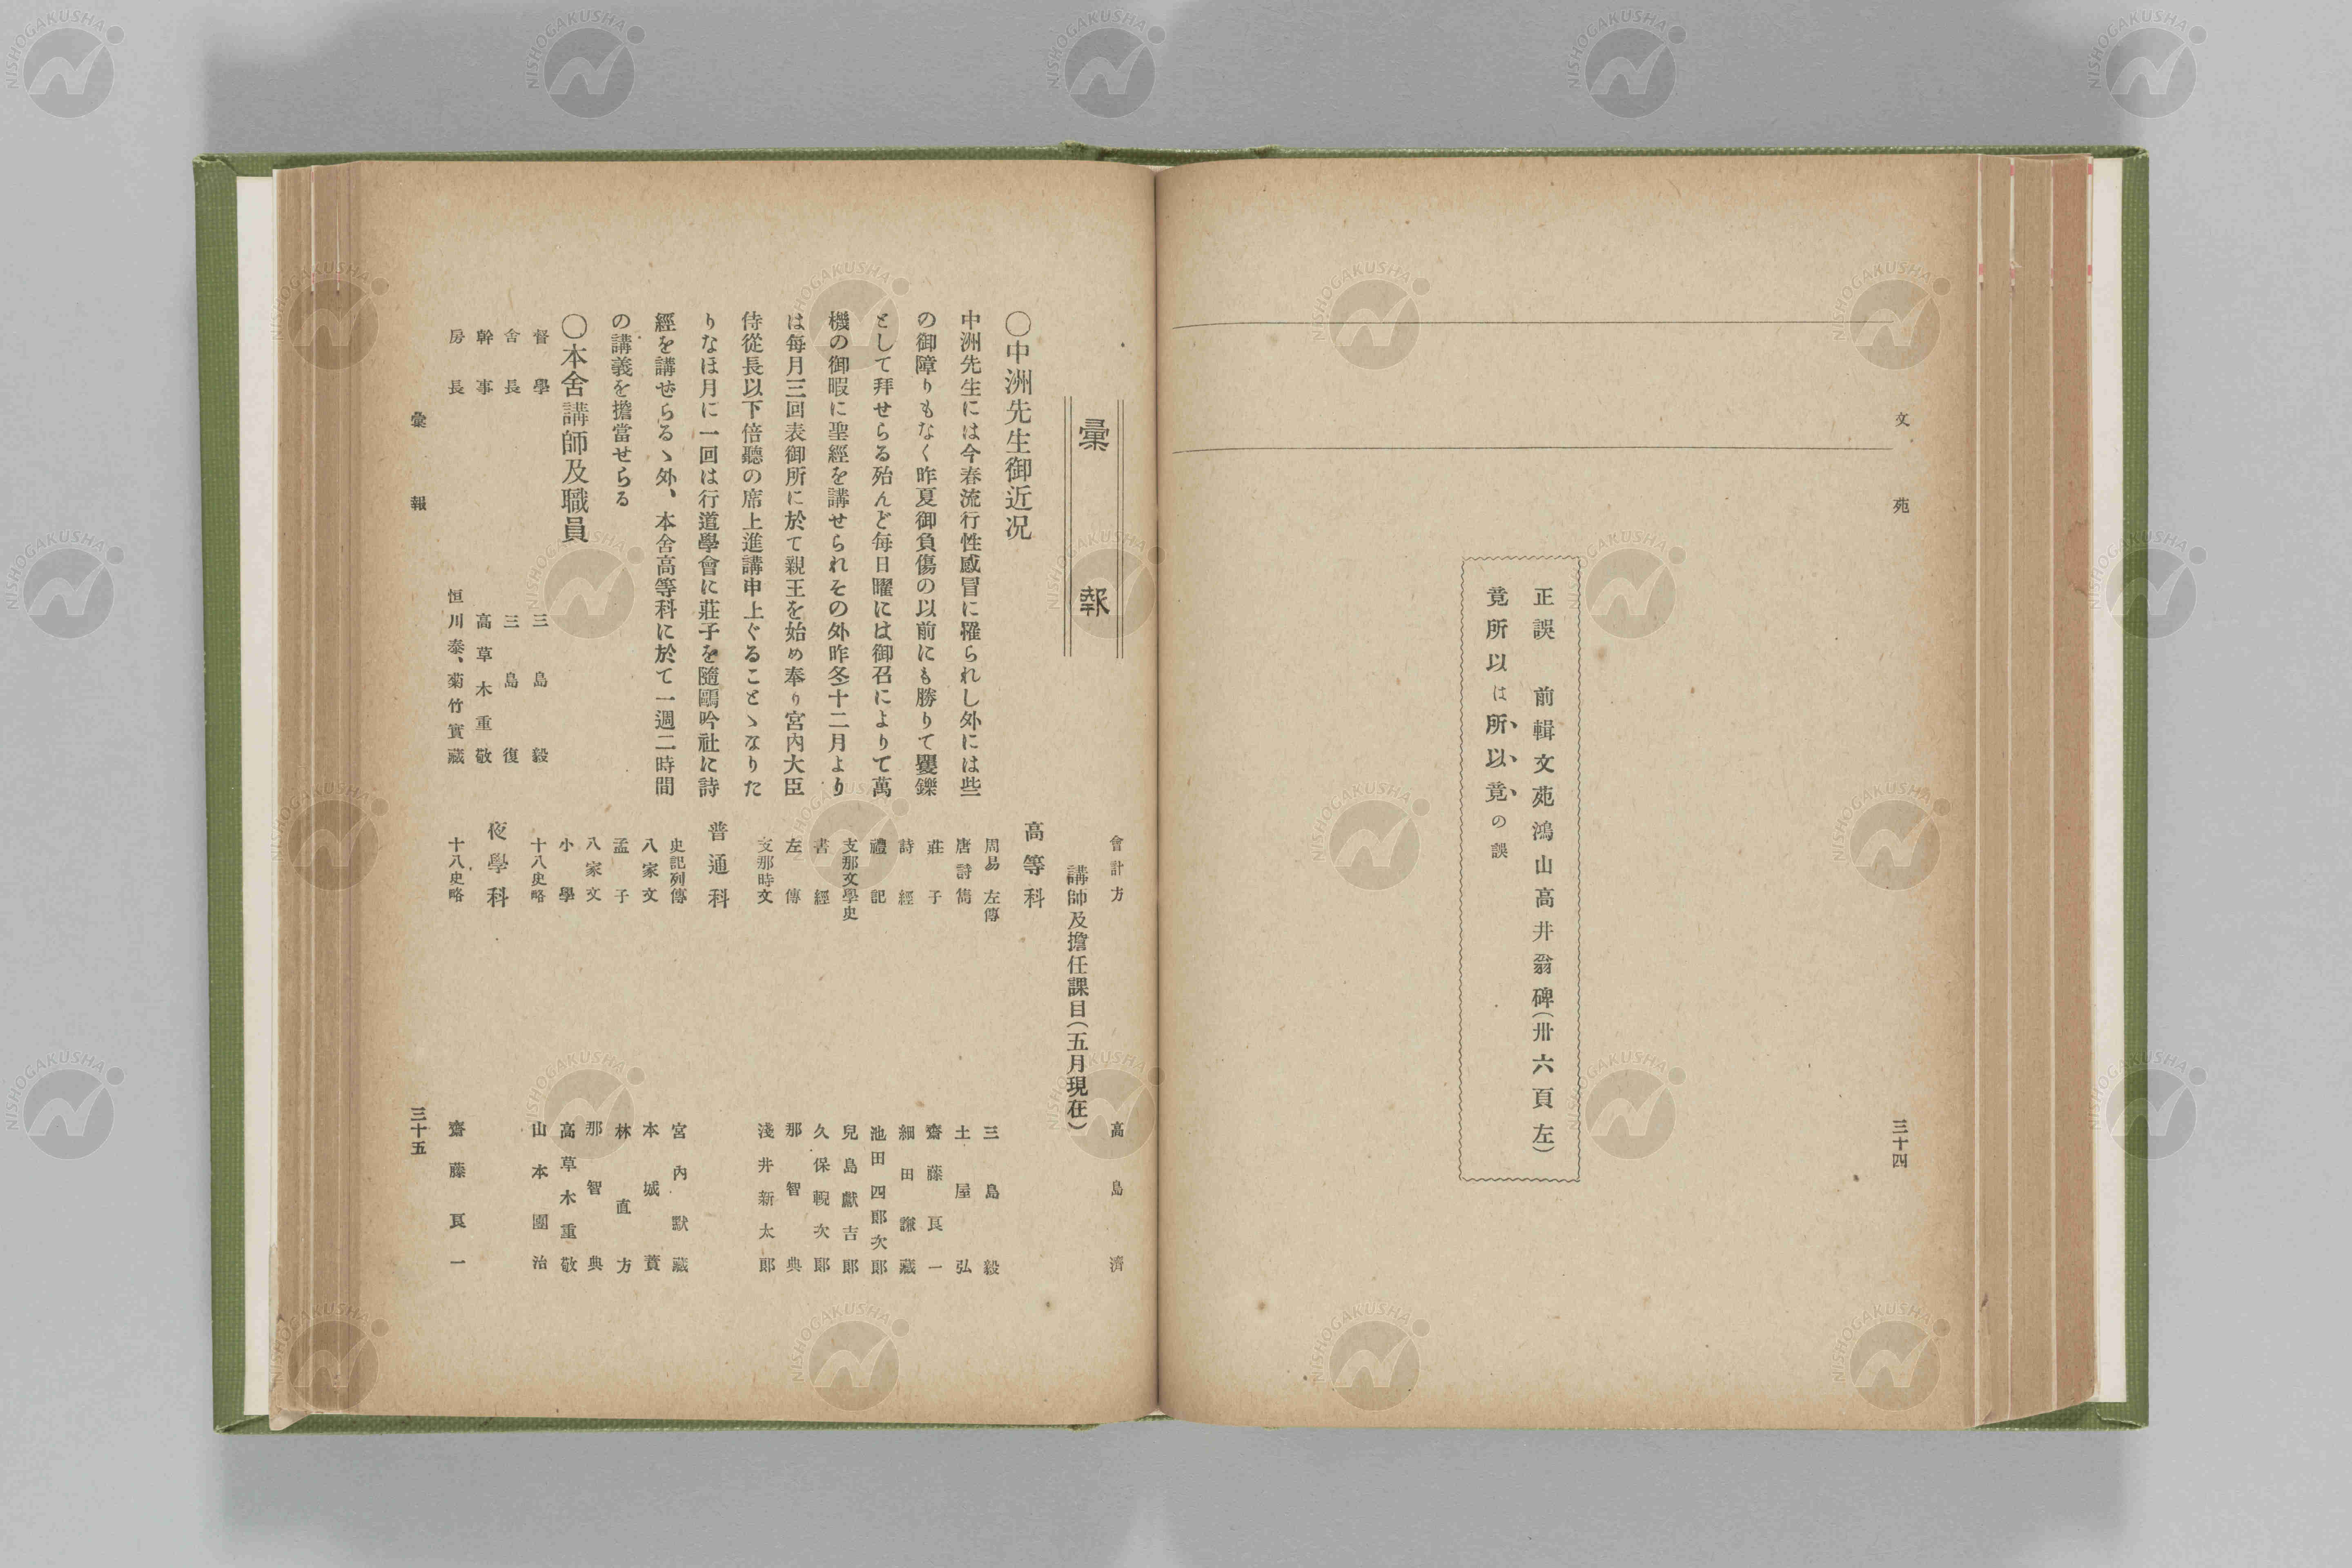 文苑
三十四
正誤 前輯文苑鴻山高井翁碑(卅六頁左)
竟所以は所以竟の誤
彙報
〇中洲先生御近况
中洲先生には今春流行性感冒に罹られし外には些
の御障りもなく昨夏御負傷の以前にも勝りて矍鑠
として拜せらる殆んど每日曜には御召によりて萬
機の御暇に聖經を講せられその外昨冬十二月より
は每月三回表御所に於て親王を始め奉り宮內大臣
侍從長以下倍聽の席上進講申上ぐることゝなりた
りなほ月に一回は行道學會に莊子を隨鷗吟社に詩
經を講せらるゝ外、本舍高等科に於て一週二時間
の講義を擔當せらる
〇本舍講師及職員
督學 三島毅
舍長 三島復
幹事 高草木重敬
房長 恒川泰、菊竹實藏
會計方 高島濟
講師及擔任課目(五月現在)
高等科
周易 左傳 三島毅
唐詩雋 土屋弘
莊子 齋藤良一
詩經 細田謙藏
禮記 池田四郎次郎
支那文學史 兒島獻吉郎
書經 久保輗次郎
左傳 那智典
支那時文 淺井新太郎
普通科
史記列傳 宮內默藏
八家文 本城蕡
孟子 林直方
八家文 那智典
小學 高草木重敬
十八史略 山本團治
夜學科
十八史略 齋藤良一
彙報
三十五
NISHOGAKUSHA